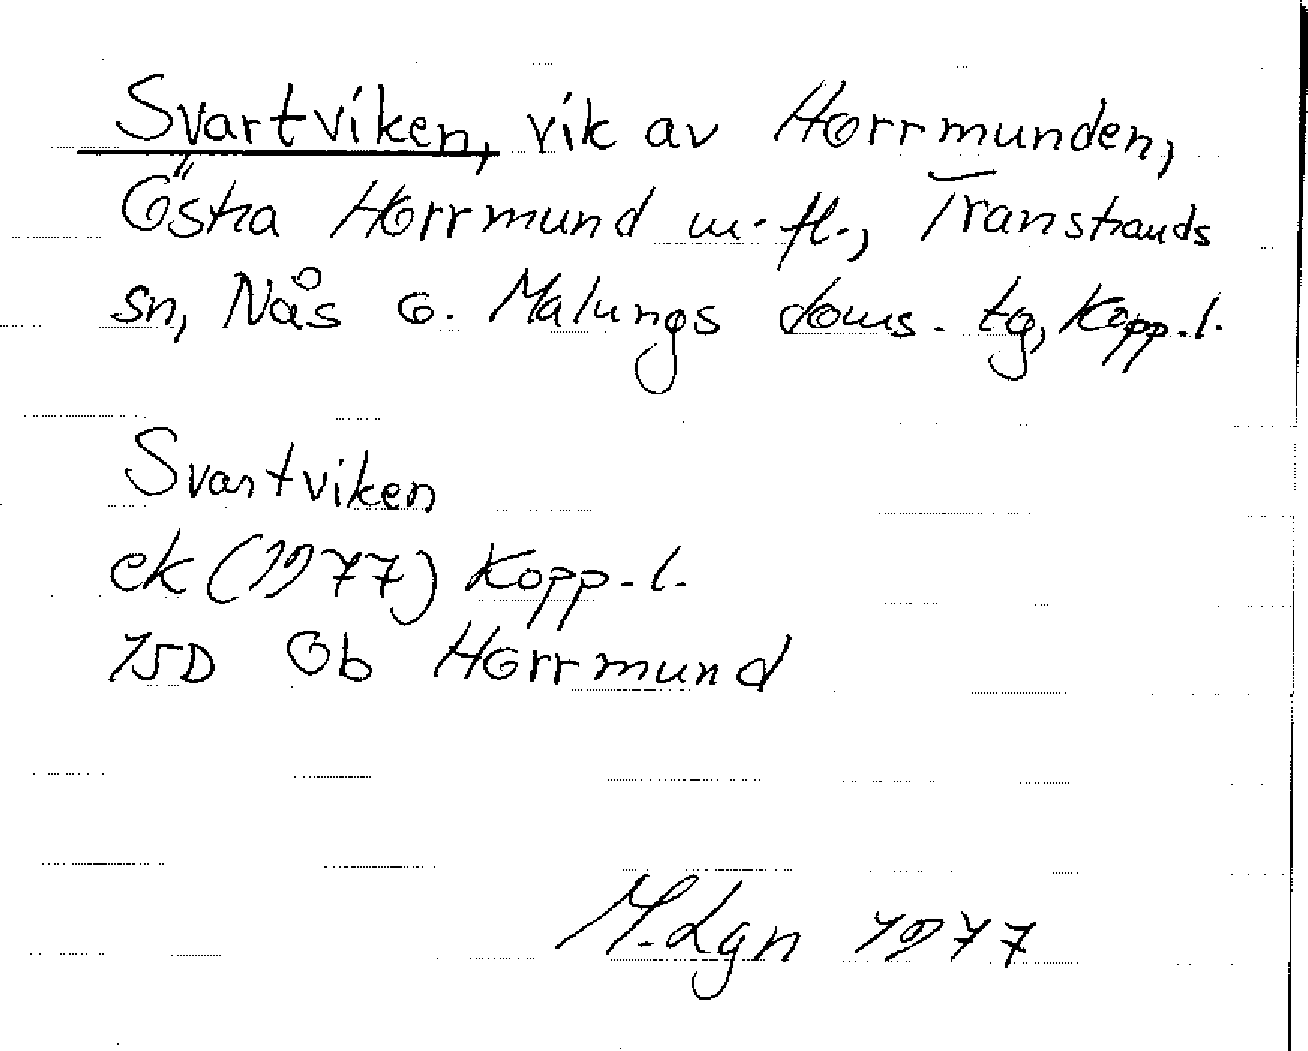 Svartviken, vik av Horrmunden,
Östra Horrmund m.fl., Transtrands
sn, Nås o. Malungs doms. tg, Kopp.l.
Svartviken
ek (1977) Kopp.l.
15D Ob Horrmund
M.Lgn 1977